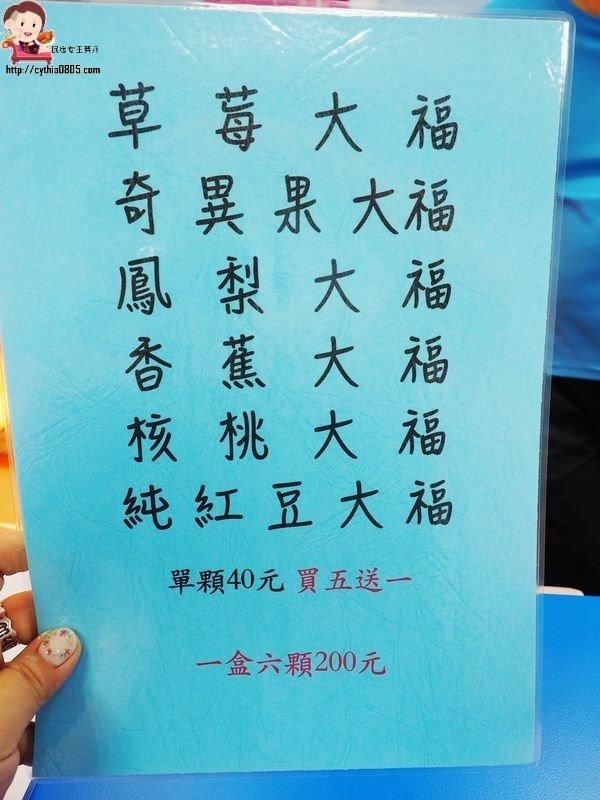 民宿女王芽月
http://cythia0805.com
草莓大福
奇異果大福
鳳梨大福
香蕉大福
核桃大福
純紅豆大福
單顆40元 買五送一
一盒六顆200元